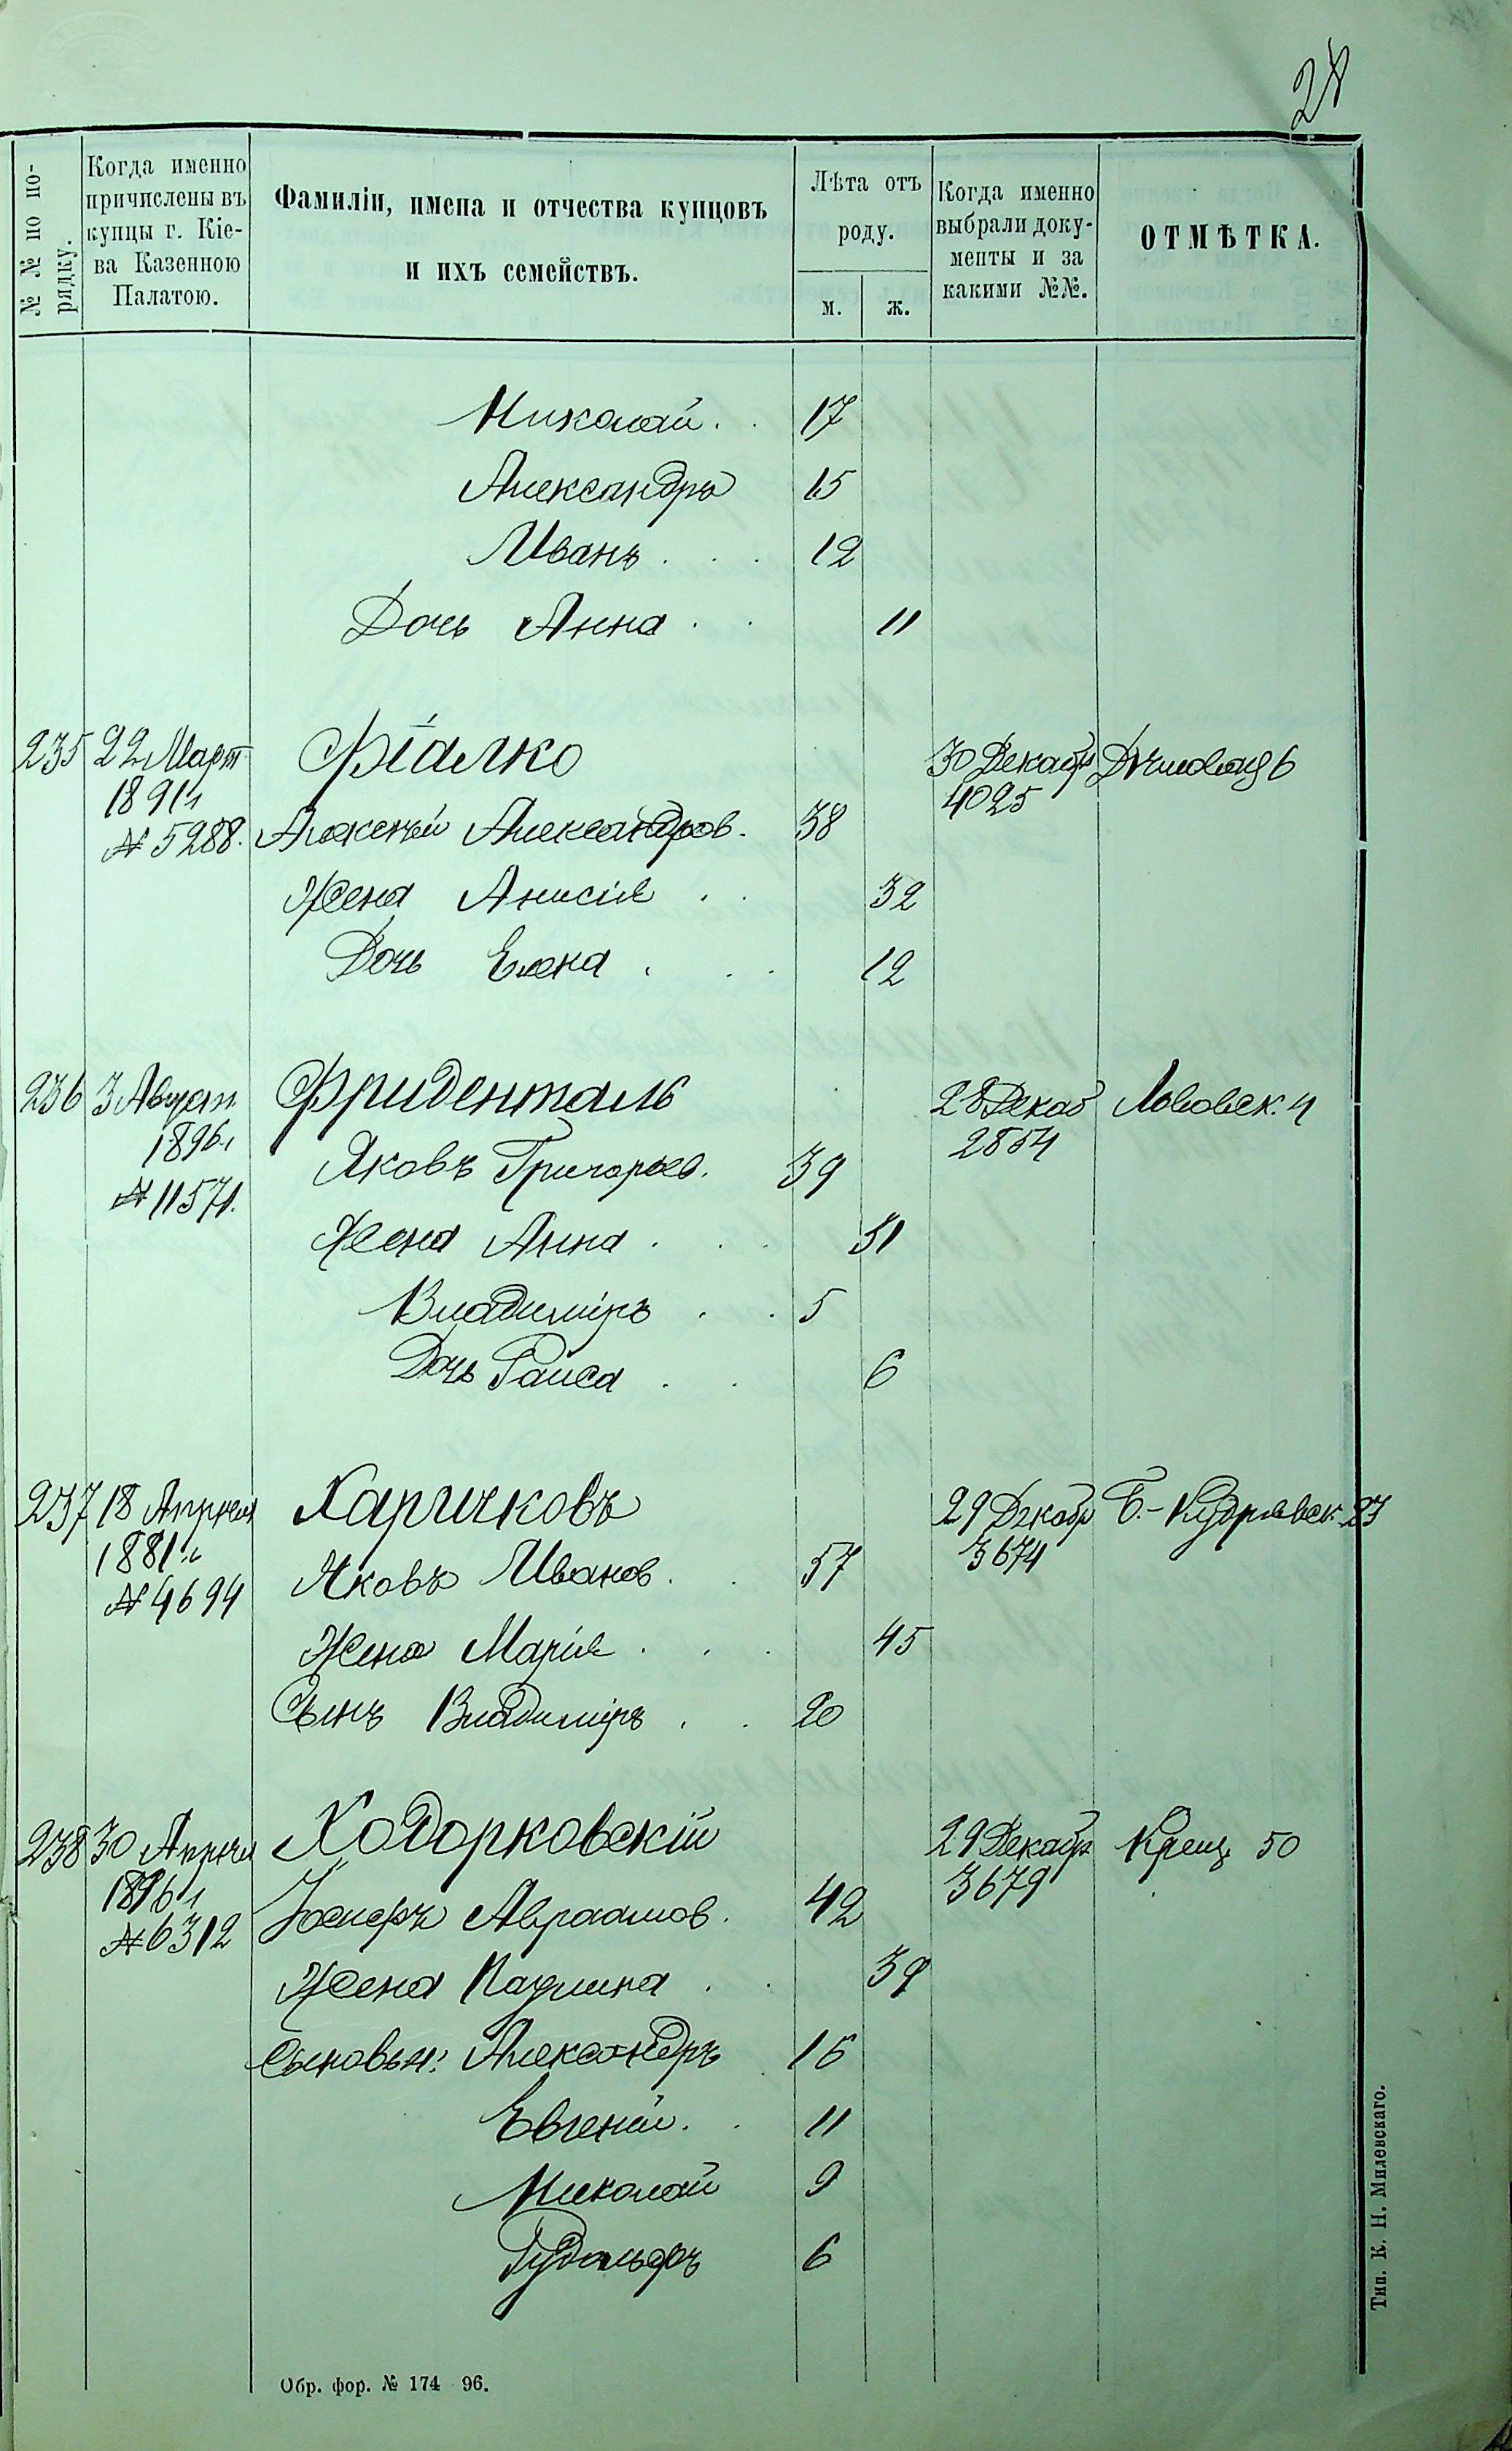 28
№ № по по-
рядку.
Когда именно
причислены въ
купцы г. Кіе-
ва Казенною
Палатою.
Фамиліи, имена и отчества купцовъ
и ихъ семействъ.
Лѣта отъ
роду.
м. ж.
Когда именно
выбрали доку-
менты и за
какими №№.
ОТМѢТКА.
Николай . . 17
Александръ 15
Иванъ . . . 12
Дочь Анна . . 11
235 22 Март Фіалко 30 Декабр 6
1891 г 4025
№ 5288. Алексѣй Александров. 38
Жена Анисія . . 32
Дочь Елена . . . 12
236 3 Август Фриденталь 28 Декаб Львовск. 4
1896 г 2854
№ 11571. Яковъ Григорьев. 39
Жена Анна . . . 31
Владиміръ . . 5
Дочь Раиса . . 6
237 18 Апрѣля Харичковъ 29 Декабр Б.-Кудрявск. 23
1881 г. 3674
№ 4694 Яковъ Иванов . . 57
Жена Марія . . . 45
Сынъ Владиміръ . . 20
238 30 Апрѣля Ходорковскій 29 Декабр Крещ. 50
1896 г 3679
№ 6312 Іосифъ Авраамов. 42
Жена Паулина . . 39
Сыновья: Александръ 16
Евгеній . . 11
Николай 9
Рудольфъ 6
Обр. фор. № 174 96.
Тип. К. Н. Милевскаго.